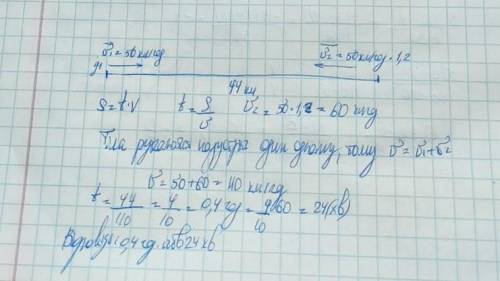 v₁ = 50 км/год
v₂ = 50 км/год · 1,2
44 км
S = t · v t = S/v v₂ = 50 · 1,2 = 60 км/год
Тіла рухаються назустріч один одному, тому v = v₁ + v₂
v = 50 + 60 = 110 км/год
t = 44/110 = 4/10 = 0,4 год = 4·60/10 = 24 (хв)
Відповідь: 0,4 год. або 24 хв